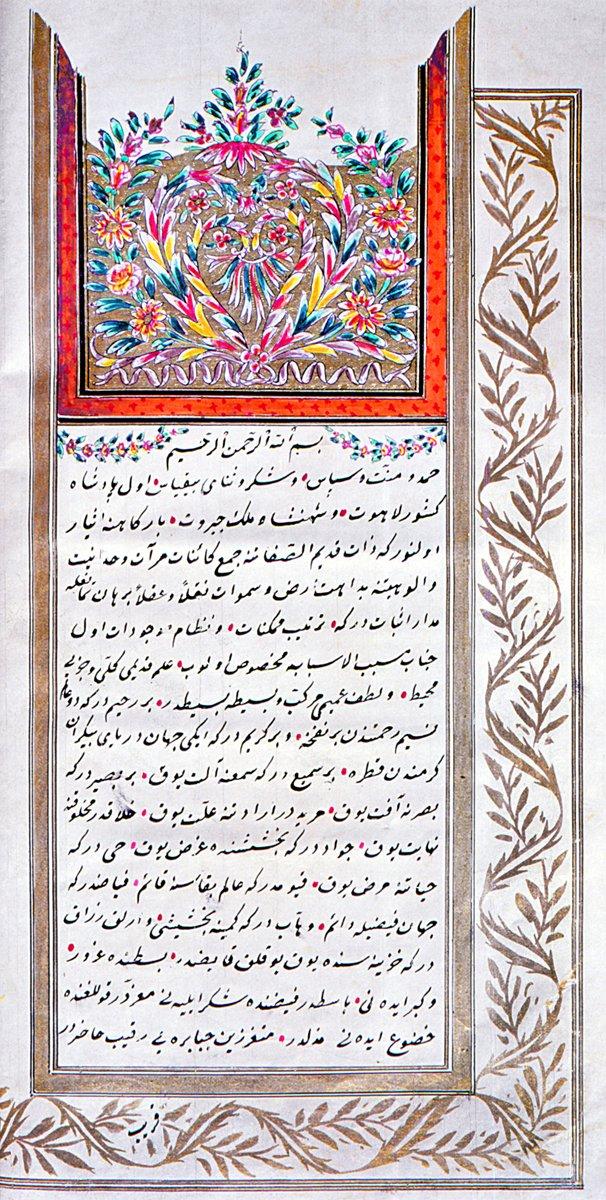 بسم الله الرحمن الرحيم
حمد و منت و سپاس و شكر و ثنای بيقياس اول پادشاه
كشور لاهوت و شهنشاه ملك جبروت بارگاهنه انيار
اولنور كه ذات قديم الصفاتنه جمع كائنات مرآت وحدانيت
و الوهيتنه بداهت ارض و سموات نقلاً و عقلاً برهان
مدار اثبات در كه ترتيب ممكنات و نظام موجودات اول
جناب مسبب الاسبابه مخصوص اولوب علم قديمی كلی و جزئی
محيط و لطف عميمی مركب و بسيطه بسيطدر بر رحيم در كه دو عالم
نسيم رحمتندن بر نفخه و بر كريم در كه ايكی جهان دريای بيكران
كرمندن قطره بر سميع در كه سمعنه آلت يوق بر بصير در كه
بصرنه آفت يوق مريد در ارادتنه علت يوق خلاقدر مخلوقنه
نهايت يوق جواد در كه بخششنده غرض يوق حی در كه
حياتنه مرض يوق قيومدر كه عالم بقاسيله قائم فياضدر كه
جهان فيضيله دائم وهاب در كه كمينه بخششی وارلق رزاق
در كه خزينه سنده يوق يوقلق قابضدر بسطنده غرور
و كبر ايده نی باسطدر قبضنده شكر ايليه نی معزدر قوللغنده
خضوع ايده نی مذلدر متعززين جبابره يی رقيب حاضردر
قريب